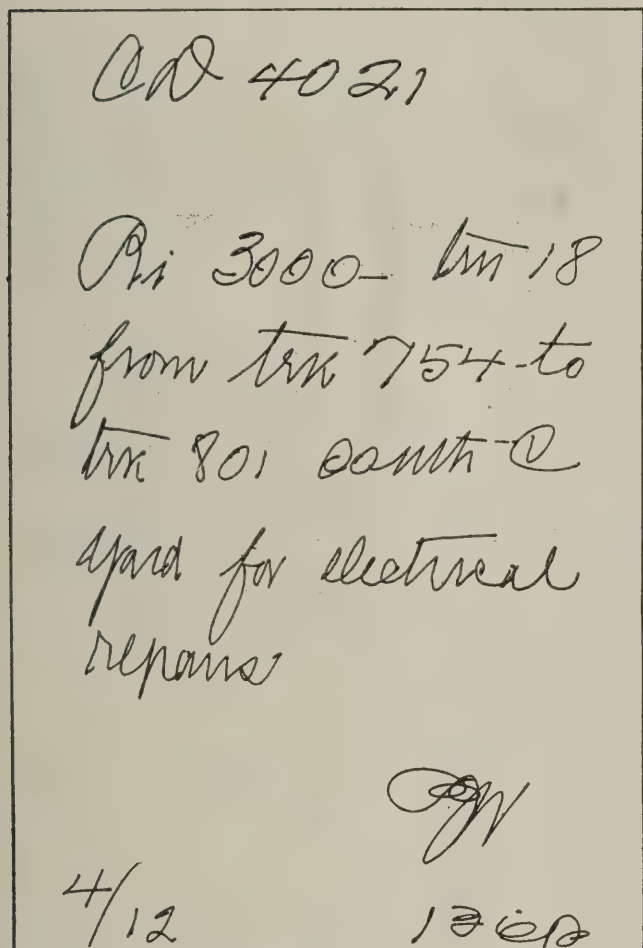 CD 4021
Ri 3000 - trn 18
from trk 754 - to
trk 801 south - C
yard for electrical
repairs
4/12